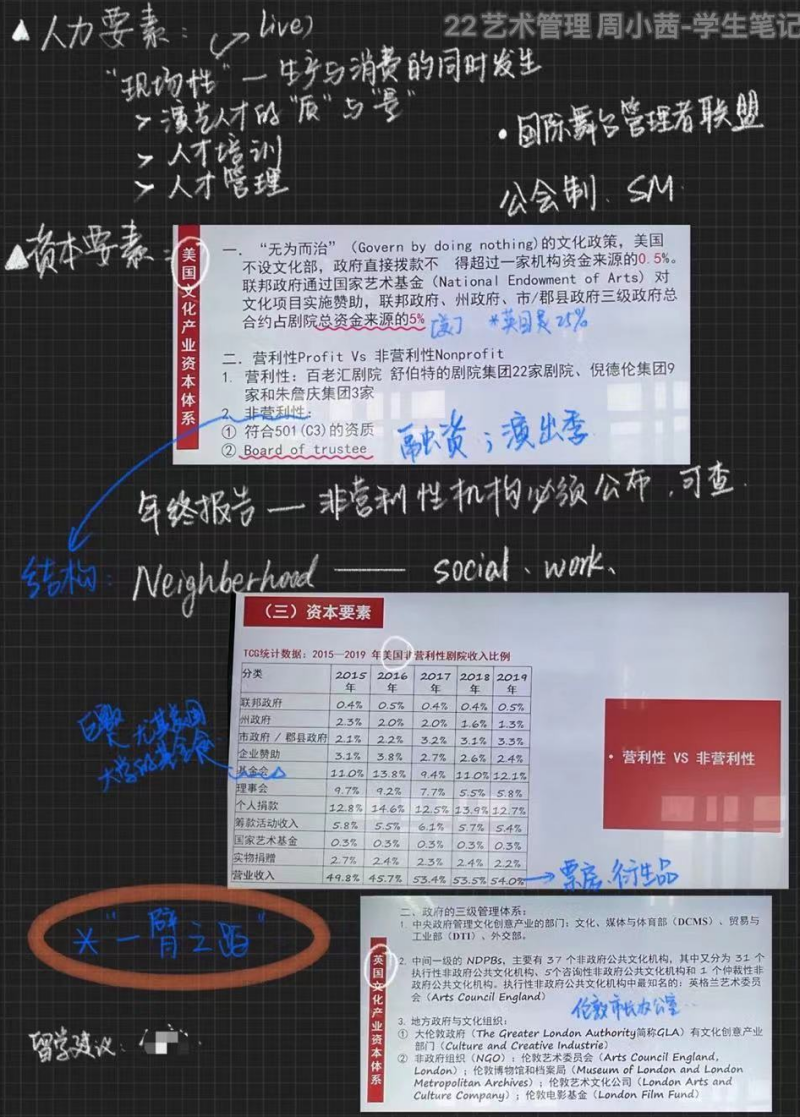 22艺术管理 周小茜-学生笔记
▲人力要素：
(live)
“现场性”—生产与消费的同时发生
> 演艺人才的“质”与“量”
> 人才培训
> 人才管理
• 国际舞台管理者联盟
公会制. SM.
▲资本要素：
美国文化产业资本体系
一. “无为而治” (Govern by doing nothing)的文化政策，美国
不设文化部，政府直接拨款不 得超过一家机构资金来源的0.5%。
联邦政府通过国家艺术基金（National Endowment of Arts）对
文化项目实施赞助，联邦政府、州政府、市/郡县政府三级政府总
合约占剧院总资金来源的5%
*英国是25%
二. 营利性Profit Vs 非营利性Nonprofit
1. 营利性：百老汇剧院 舒伯特的剧院集团22家剧院、倪德伦集团9
家和朱詹庆集团3家
2. 非营利性：
① 符合501(C3)的资质
② Board of trustee
融资；演出季
年终报告 — 非营利性机构必须公布，可查.
结构: Neighberhood —— social、work、
（三）资本要素
TCG统计数据：2015—2019 年美国非营利性剧院收入比例
分类 2015年 2016年 2017年 2018年 2019年
联邦政府 0.4% 0.5% 0.4% 0.4% 0.5%
州政府 2.3% 2.0% 2.0% 1.6% 1.3%
市政府 / 郡县政府 2.1% 2.2% 3.2% 3.1% 3.3%
企业赞助 3.1% 3.8% 2.7% 2.6% 2.4%
基金会 11.0% 13.8% 9.4% 11.0% 12.1%
理事会 9.7% 9.2% 7.7% 5.5% 5.8%
个人捐款 12.8% 14.6% 12.5% 13.9% 12.7%
筹款活动收入 5.8% 5.5% 6.1% 5.7% 5.4%
国家艺术基金 0.3% 0.3% 0.3% 0.3% 0.3%
实物捐赠 2.7% 2.4% 2.3% 2.4% 2.2%
营业收入 49.8% 45.7% 53.4% 53.5% 54.0%
尤其美国
大学的基金会
• 营利性 VS 非营利性
→票房、衍生品
*“一臂之距”
英国文化产业资本体系
二、政府的三级管理体系：
1. 中央政府管理文化创意产业的部门：文化、媒体与体育部（DCMS）、贸易与
工业部（DTI）、外交部。
2. 中间一级的 NDPBs，主要有 37 个非政府公共文化机构，其中又分为 31 个
执行性非政府公共文化机构、5个咨询性非政府公共文化机构和 1 个仲裁性非
政府公共文化机构。执行性非政府公共文化机构中最知名的：英格兰艺术委员
会（Arts Council England）
伦敦市长办公室
3. 地方政府与文化组织：
① 大伦敦政府（The Greater London Authority简称GLA）有文化创意产业
部门（Culture and Creative Industrie）
② 非政府组织（NGO）：伦敦艺术委员会（Arts Council England,
London）；伦敦博物馆和档案局（Museum of London and London
Metropolitan Archives）；伦敦艺术文化公司（London Arts and
Culture Company）；伦敦电影基金（London Film Fund）
留学建议：